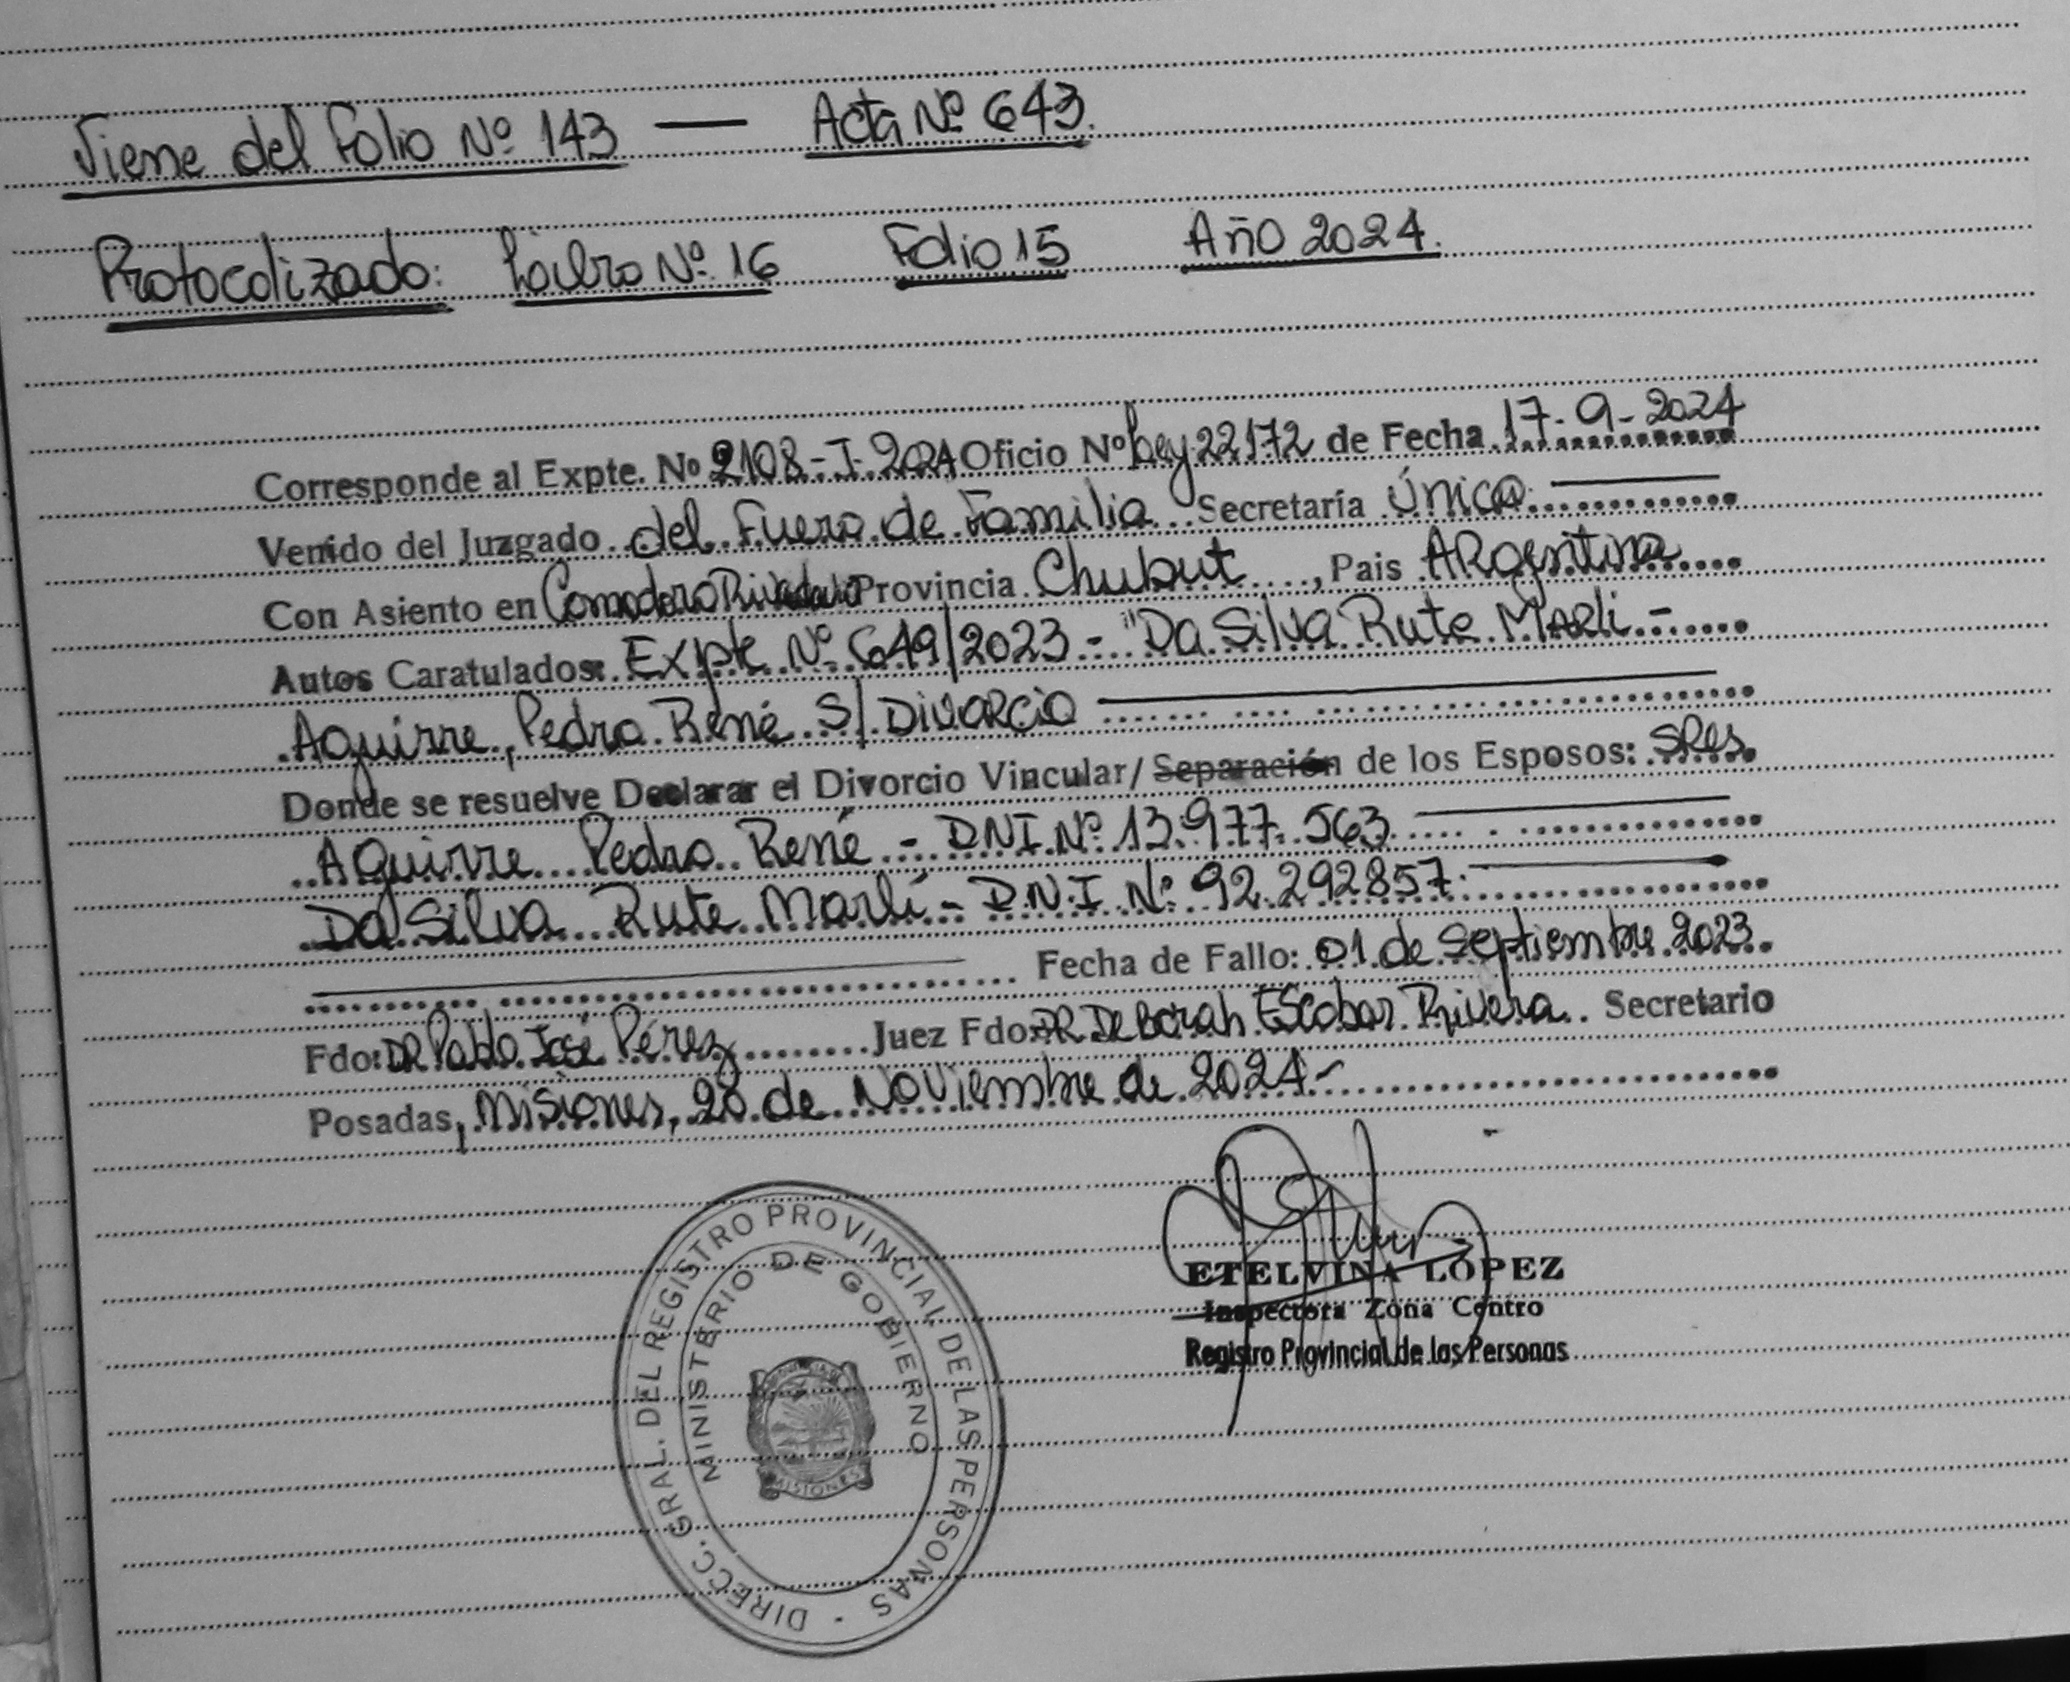 Viene del Folio Nº 143 — Acta Nº 643.
Protocolizado: Libro Nº 16 Folio 15 Año 2024.
Corresponde al Expte. Nº 2108-I-2024 Oficio Nº Ley 22172 de Fecha 17-9-2024
Venido del Juzgado del Fuero de Familia Secretaría Única.
Con Asiento en Comodoro Rivadavia Provincia Chubut, Pais ARgentina
Autos Caratulados: Expte Nº 649/2023 - "Da Silva Rute MARli -
Aguirre, Pedro René S/ DIVORCIO
Donde se resuelve Declarar el Divorcio Vincular/ Separación de los Esposos: SRes.
Aguirre Pedro René - DNI Nº 13.977.563
Da Silva Rute Marlí - D.N.I Nº 92.292857.
Fecha de Fallo: 01 de Septiembre 2023.
Fdo: DR Pablo José Pérez Juez Fdo: DR Deborah Escobar Rivera. Secretario
Posadas, Misiones, 20 de Noviembre de 2024-
ETELVINA LOPEZ
Inspectora Zona Centro
Registro Provincial de las Personas
DIRECC. GRAL. DEL REGISTRO PROVINCIAL DE LAS PERSONAS -
MINISTERIO DE GOBIERNO
MISIONES